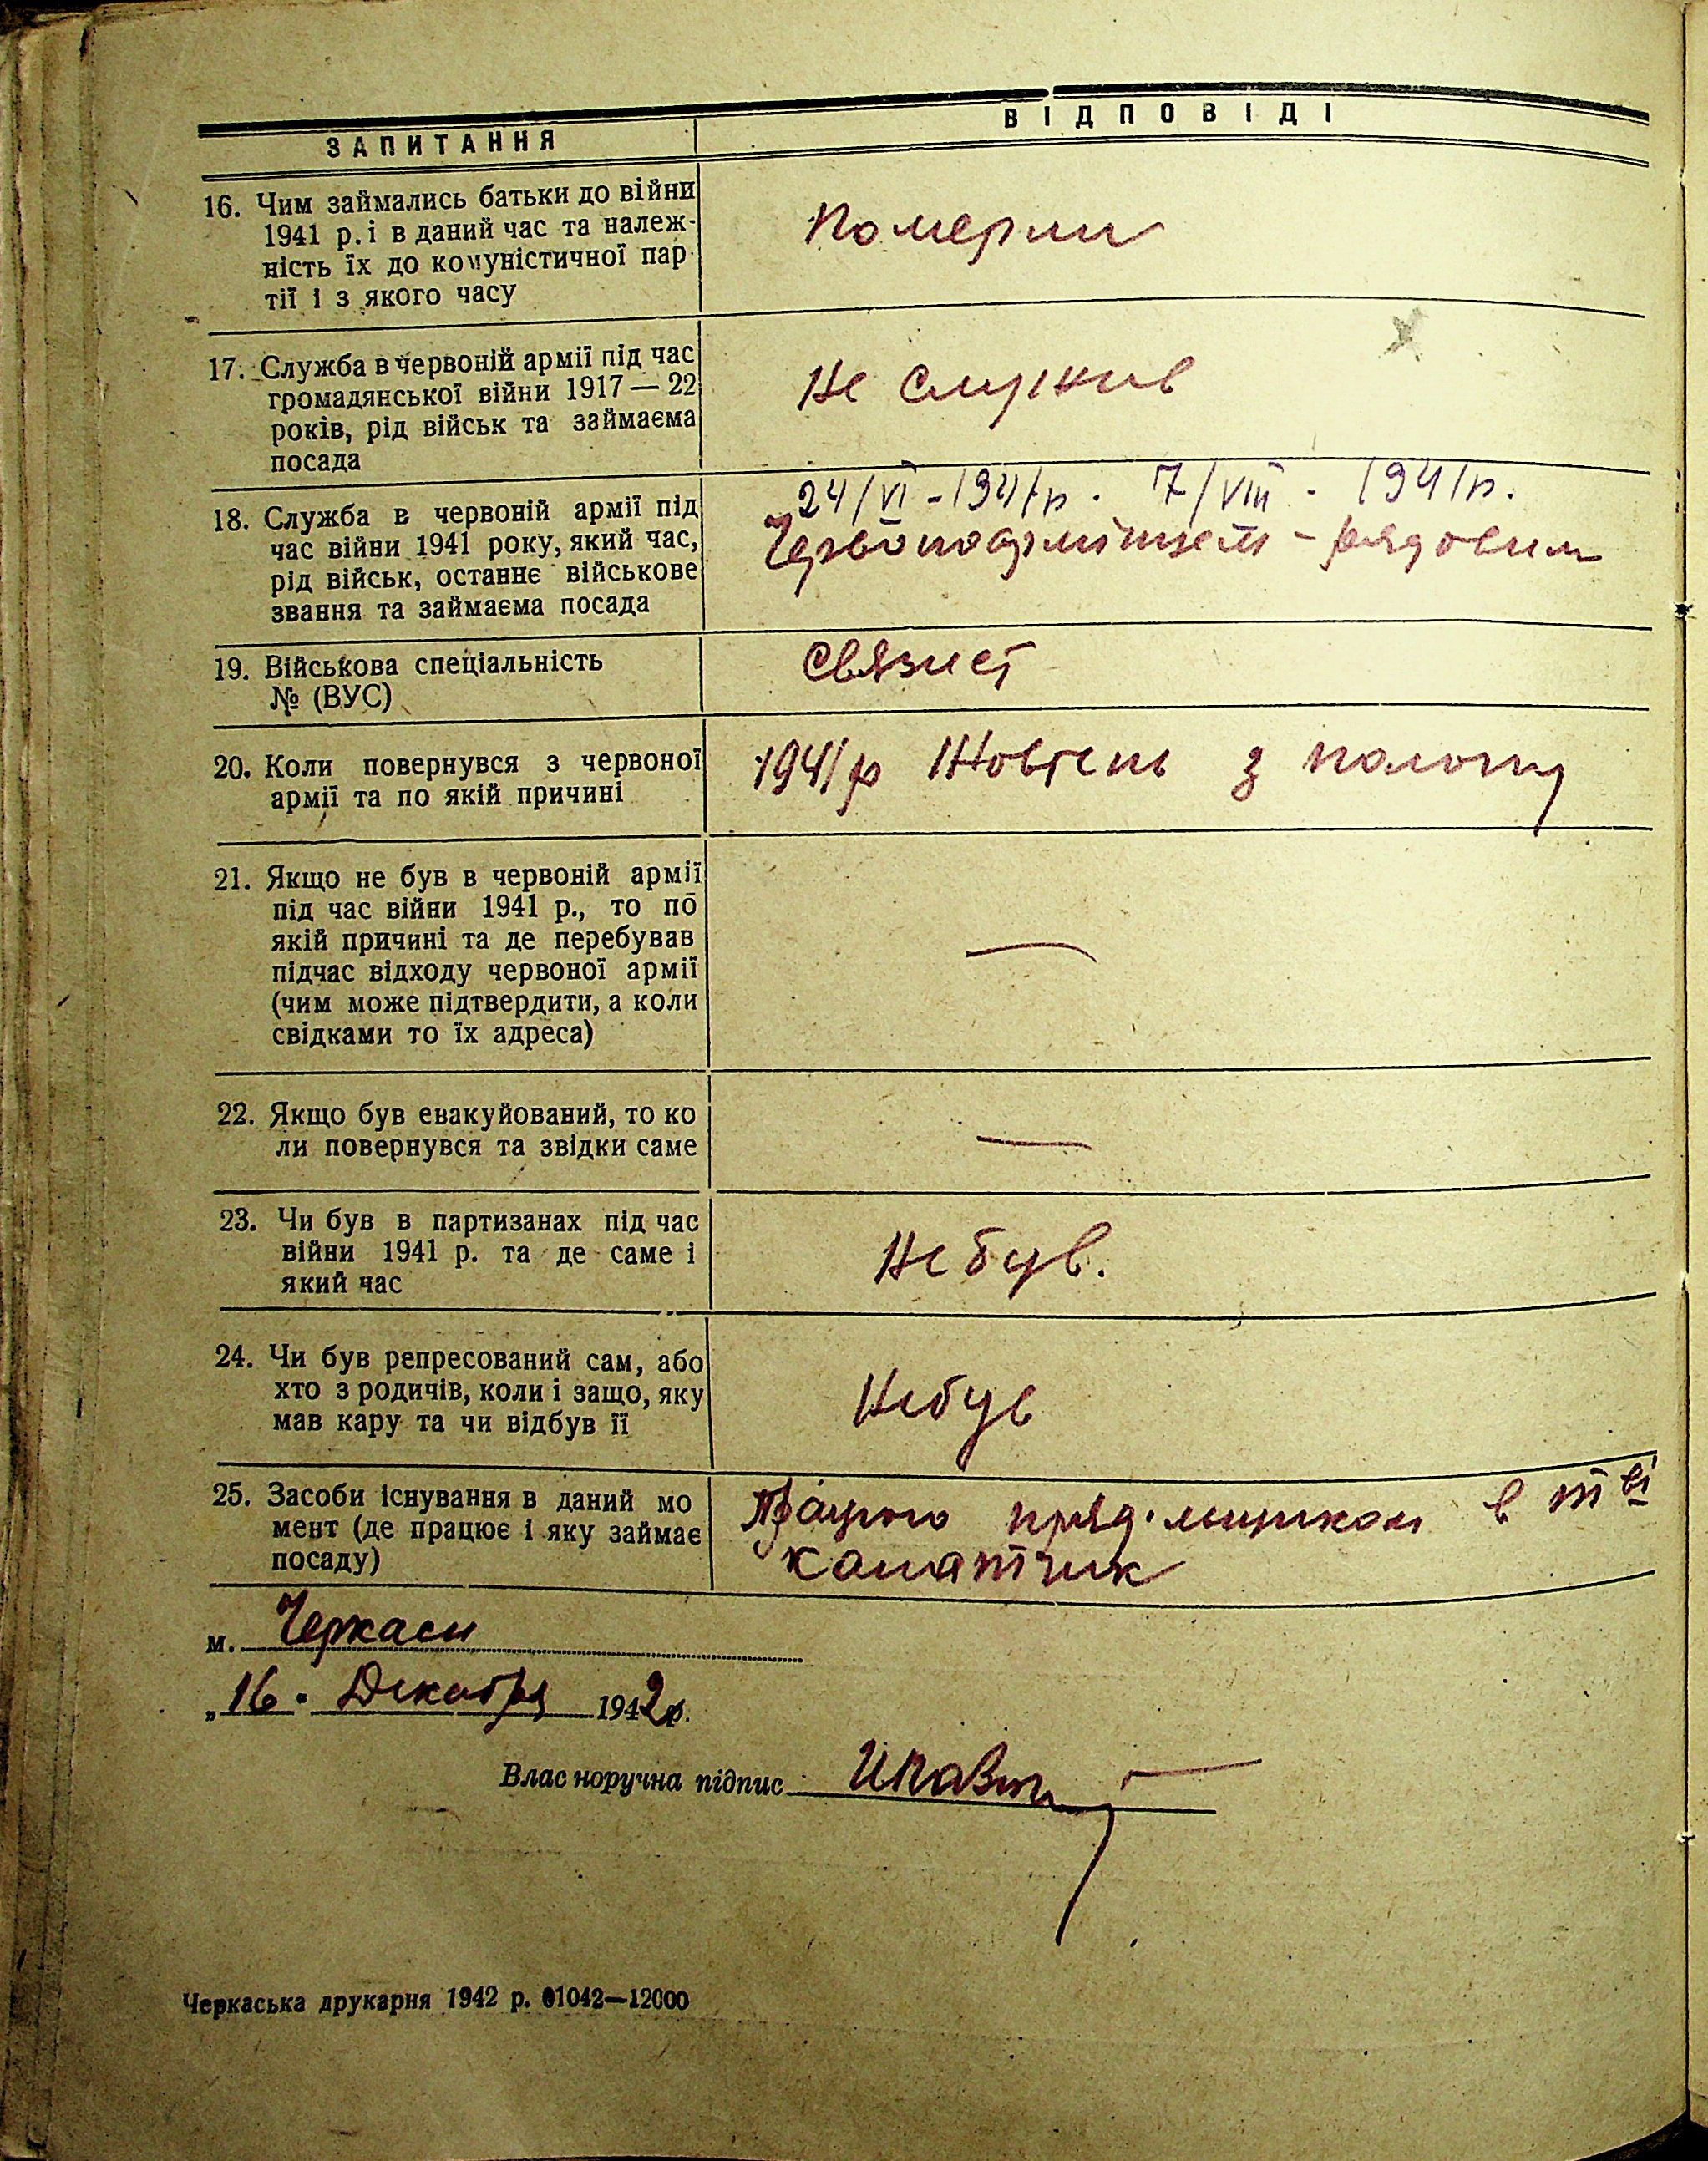 ЗАПИТАННЯ
ВІДПОВІДІ
16. Чим займались батьки до війни
1941 р. і в даний час та належ-
ність їх до комуністичної пар-
тії і з якого часу
Померли
17. Служба в червоній армії під час
громадянської війни 1917 — 22
років, рід військ та займаєма
посада
Не служив
18. Служба в червоній армії під
час війни 1941 року, який час,
рід військ, останнє військове
звання та займаєма посада
24/VI - 1941р. 7/VIII - 1941р.
Червоноармійцем - рядовим
19. Військова спеціальність
№ (ВУС)
Связист
20. Коли повернувся з червоної
армії та по якій причині
1941р Жовтень з полону
21. Якщо не був в червоній армії
під час війни 1941 р., то по
якій причині та де перебував
підчас відходу червоної армії
(чим може підтвердити, а коли
свідками то їх адреса)
—
22. Якщо був евакуйований, то ко
ли повернувся та звідки саме
—
23. Чи був в партизанах під час
війни 1941 р. та де саме і
який час
Не був.
24. Чи був репресований сам, або
хто з родичів, коли і защо, яку
мав кару та чи відбув її
Не був
25. Засоби існування в даний мо
мент (де працює і яку займає
посаду)
Працюю пряд.льщиком в т ві
канатчик
м. Черкаси
„16. Декабря 1942 р.
Влас норучна підпис
Черкаська друкарня 1942 р. 01042—12000